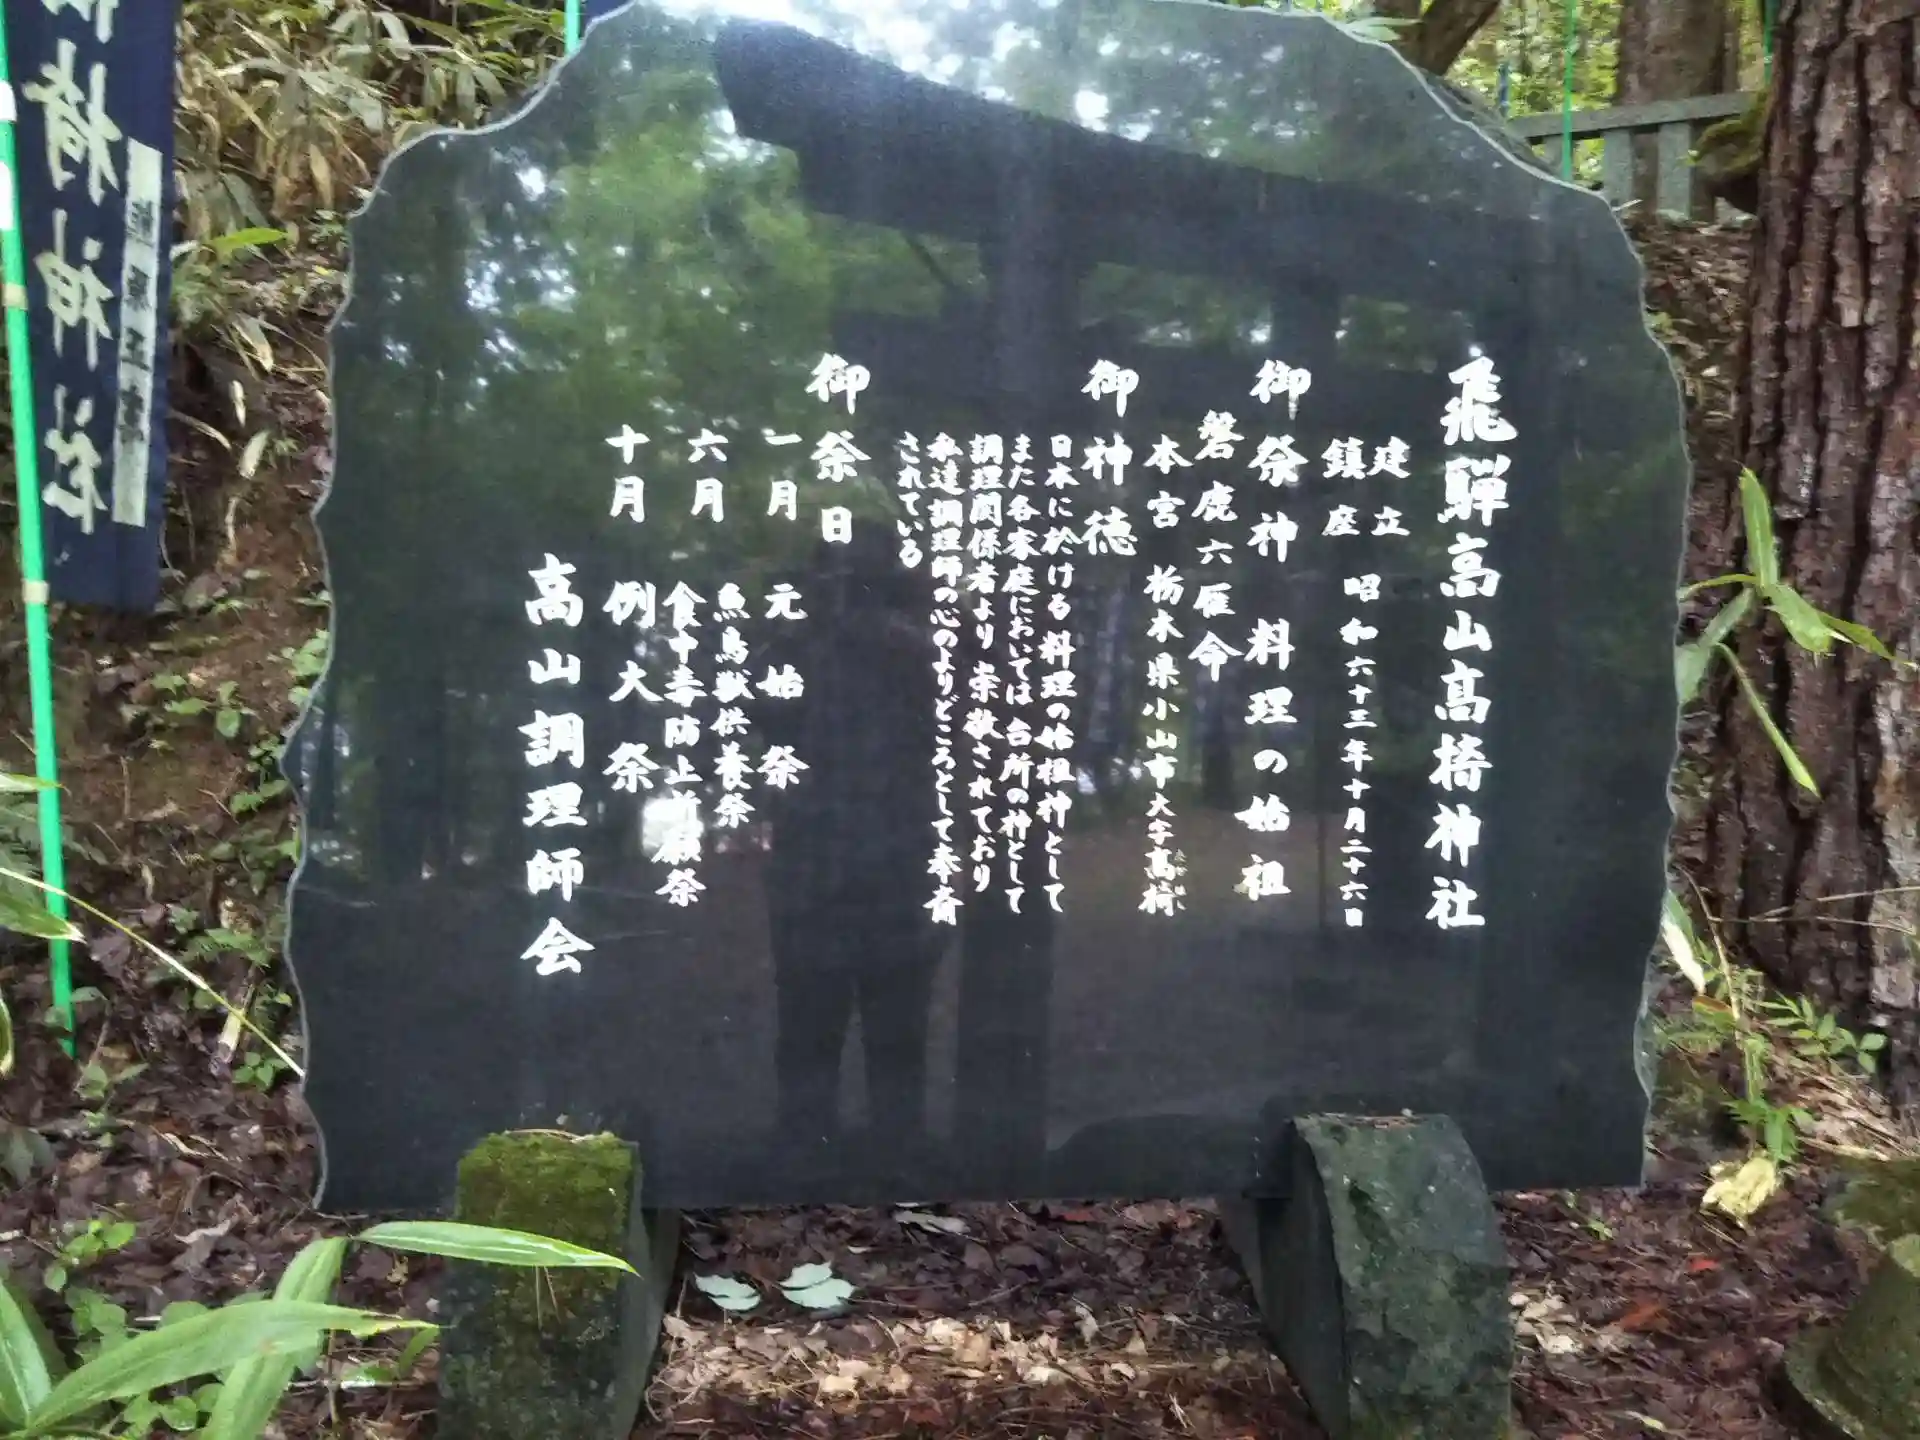 飛騨高山高椅神社
建立
鎮座
昭和六十三年十月二十六日
御祭神 料理の始祖
磐鹿六雁命
本宮 栃木県小山市大字高椅
御神徳
日本に於ける料理の始祖神として
また各家庭においては台所の神として
調理関係者より崇敬されており
私達調理師の心のよりどころとして奉斎
されている
御祭日
一月 元始祭
六月 魚鳥獣供養祭
食中毒防止祈願祭
十月 例大祭
高山調理師会
椅神社